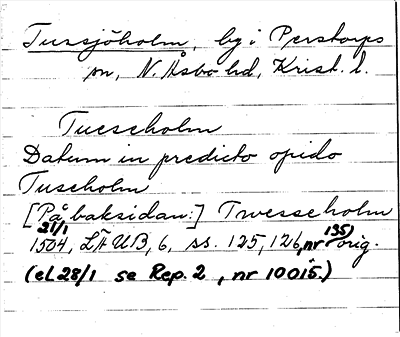 Tussjöholm, by i Perstorps
sn, N. Åsbo hd, Krist. l.
Tucseholm
Datum in predicto opido
Tuscholm
[På baksidan:] Twesse holm
21/1
1504, LÄUB, 6, ss. 125, 126, nr 135) orig.
(el. 28/1 se Rep. 2, nr 10015.)